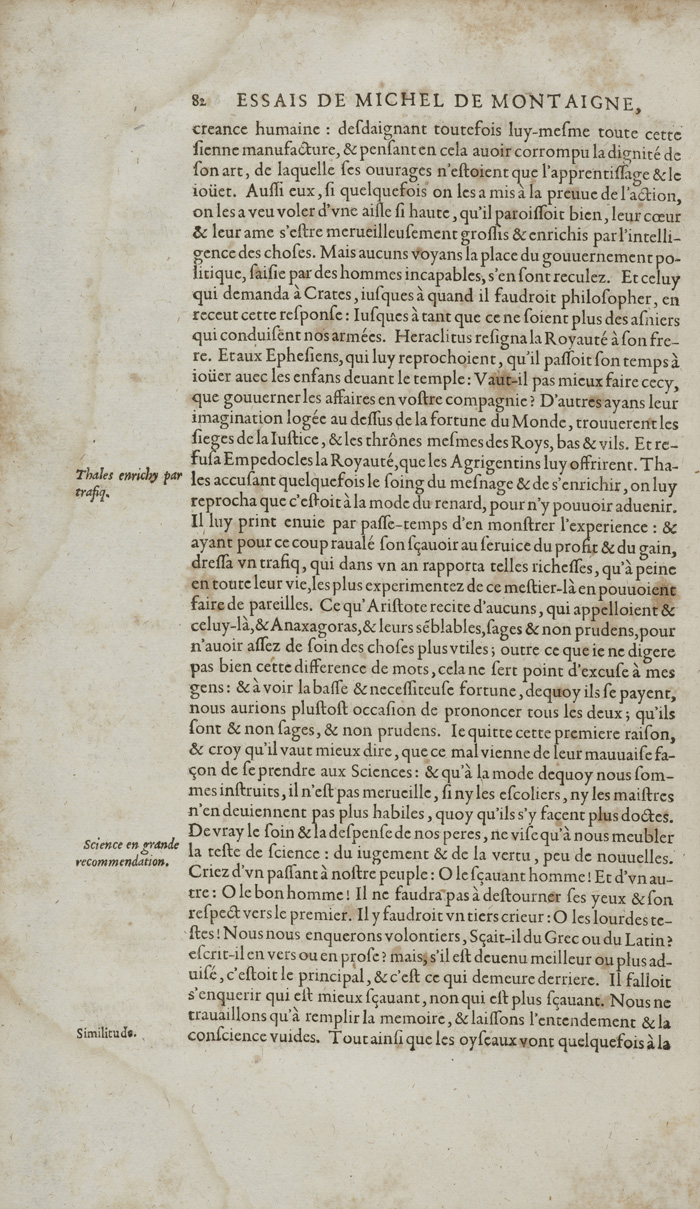 82 ESSAIS DE MICHEL DE MONTAIGNE,
creance humaine : deſdaignant toutefois luy-meſme toute cette
ſienne manufacture, & penſant en cela auoir corrompu la dignité de
ſon art, de laquelle ſes ouurages n'eſtoient que l'apprentiſſage & le
ioüet. Auſſi eux, ſi quelquefois on les a mis à la preuue de l'action,
on les a veu voler d'vne aiſle ſi haute, qu'il paroiſſoit bien, leur cœur
& leur ame s'eſtre merueilleuſement groſſis & enrichis par l'intelli-
gence des choſes. Mais aucuns voyans la place du gouuernement po-
litique, ſaiſie par des hommes incapables, s'en ſont reculez. Et celuy
qui demanda à Crates, iuſques à quand il faudroit philoſopher, en
receut cette reſponſe : Iuſques à tant que ce ne ſoient plus des aſniers
qui conduiſent nos armées. Heraclitus reſigna la Royauté à ſon fre-
re. Et aux Epheſiens, qui luy reprochoient, qu'il paſſoit ſon temps à
ioüer auec les enfans deuant le temple : Vaut-il pas mieux faire cecy,
que gouuerner les affaires en voſtre compagnie ? D'autres ayans leur
imagination logée au deſſus de la fortune du Monde, trouuerent les
ſieges de la Iuſtice, & les thrônes meſmes des Roys, bas & vils. Et re-
fuſa Empedocles la Royauté, que les Agrigentins luy offrirent. Tha-
Thales enrichy par
trafiq.
les accuſant quelquefois le ſoing du meſnage & de s'enrichir, on luy
reprocha que c'eſtoit à la mode du renard, pour n'y pouuoir aduenir.
Il luy print enuie par paſſe-temps d'en monſtrer l'experience : &
ayant pour ce coup raualé ſon ſçauoir au ſeruice du profit & du gain,
dreſſa vn trafiq, qui dans vn an rapporta telles richeſſes, qu'à peine
en toute leur vie, les plus experimentez de ce meſtier-là en pouuoient
faire de pareilles. Ce qu'Ariſtote recite d'aucuns, qui appelloient &
celuy-là, & Anaxagoras, & leurs sẽblables, ſages & non prudens, pour
n'auoir aſſez de ſoin des choſes plus vtiles ; outre ce que ie ne digere
pas bien cette difference de mots, cela ne ſert point d'excuſe à mes
gens : & à voir la baſſe & neceſſiteuſe fortune, dequoy ils ſe payent,
nous aurions pluſtoſt occaſion de prononcer tous les deux ; qu'ils
ſont & non ſages, & non prudens. Ie quitte cette premiere raiſon,
& croy qu'il vaut mieux dire, que ce mal vienne de leur mauuaiſe fa-
çon de ſe prendre aux Sciences : & qu'à la mode dequoy nous ſom-
mes inſtruits, il n'eſt pas merueille, ſi ny les eſcoliers, ny les maiſtres
n'en deuiennent pas plus habiles, quoy qu'ils s'y façent plus doctes.
De vray le ſoin & la deſpenſe de nos peres, ne viſe qu'à nous meubler
Science en grande
recommendation.
la teſte de ſcience : du iugement & de la vertu, peu de nouuelles.
Criez d'vn paſſant à noſtre peuple : O le ſçauant homme ! Et d'vn au-
tre : O le bon homme ! Il ne faudra pas à deſtourner ſes yeux & ſon
reſpect vers le premier. Il y faudroit vn tiers crieur : O les lourdes te-
ſtes ! Nous nous enquerons volontiers, Sçait-il du Grec ou du Latin ?
eſcrit-il en vers ou en proſe ? mais, s'il eſt deuenu meilleur ou plus ad-
uiſé, c'eſtoit le principal, & c'eſt ce qui demeure derriere. Il falloit
s'enquerir qui eſt mieux ſçauant, non qui eſt plus ſçauant. Nous ne
trauaillons qu'à remplir la memoire, & laiſſons l'entendement & la
Similitude.
conſcience vuides. Tout ainſi que les oyſeaux vont quelquefois à la